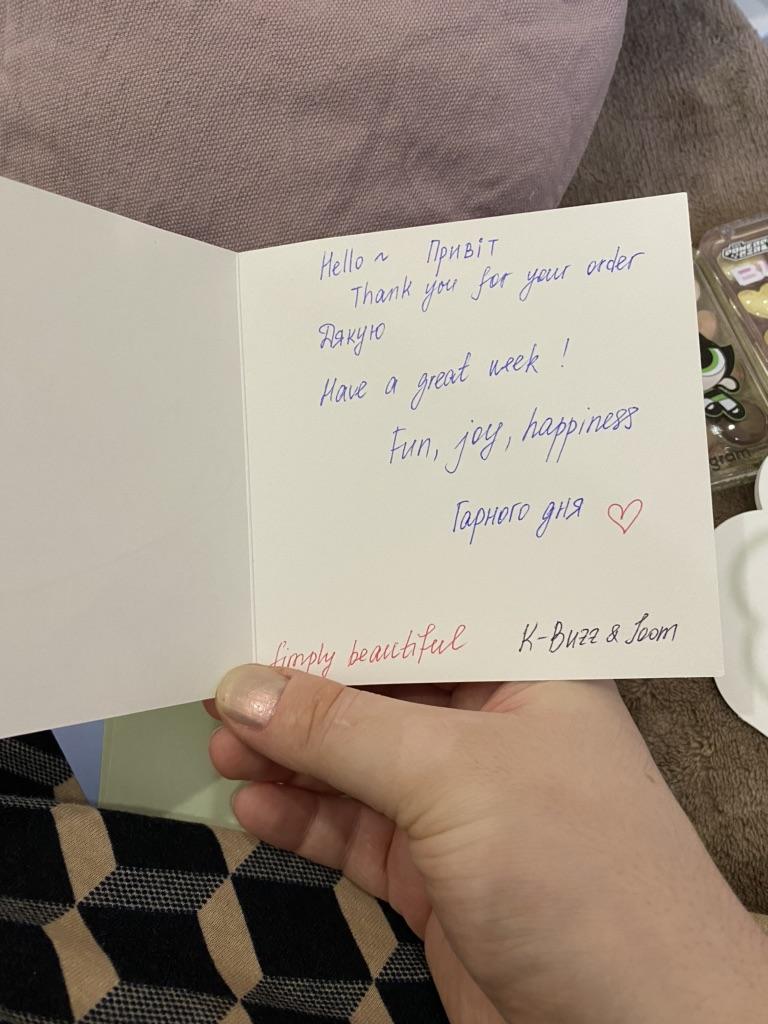 Hello ~ Привіт
Thank you for your order
Дякую
Have a great week !
Fun, joy, happiness
Гарного дня
simply beautiful
K-Buzz & Joom
gram